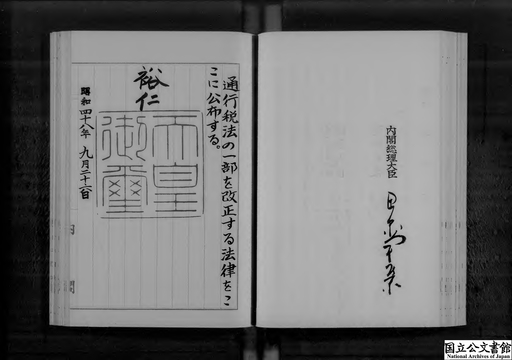 内閣総理大臣
田中角榮
通行税法の一部を改正する法律をこ
こに公布する。
裕仁
天皇
御璽
昭和四十八年 九月二十六日
国立公文書館
National Archives of Japan